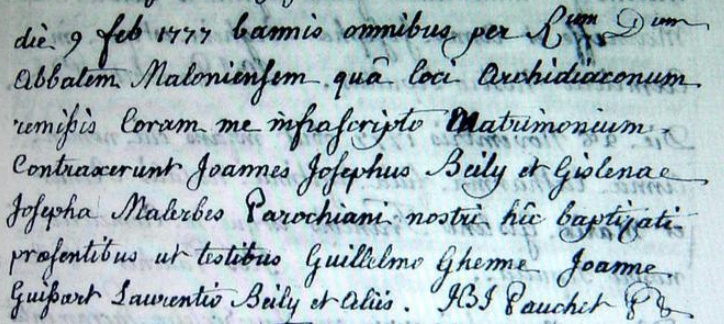 die 9 feb 1777 bannis omnibus per Rum Dum
Abbatem Maloniensem quâ loci Archidiaconum
remissis Coram me infrascripto Matrimonium
Contraxerunt Joannes Josephus Beily et Gislenae
Josepha Malerbes Parochiani nostri hîc baptizati
praesentibus ut testibus Guillelmo Ghenne Joanne
Guissart Laurentio Beily et aliis. JBJ Pauchet